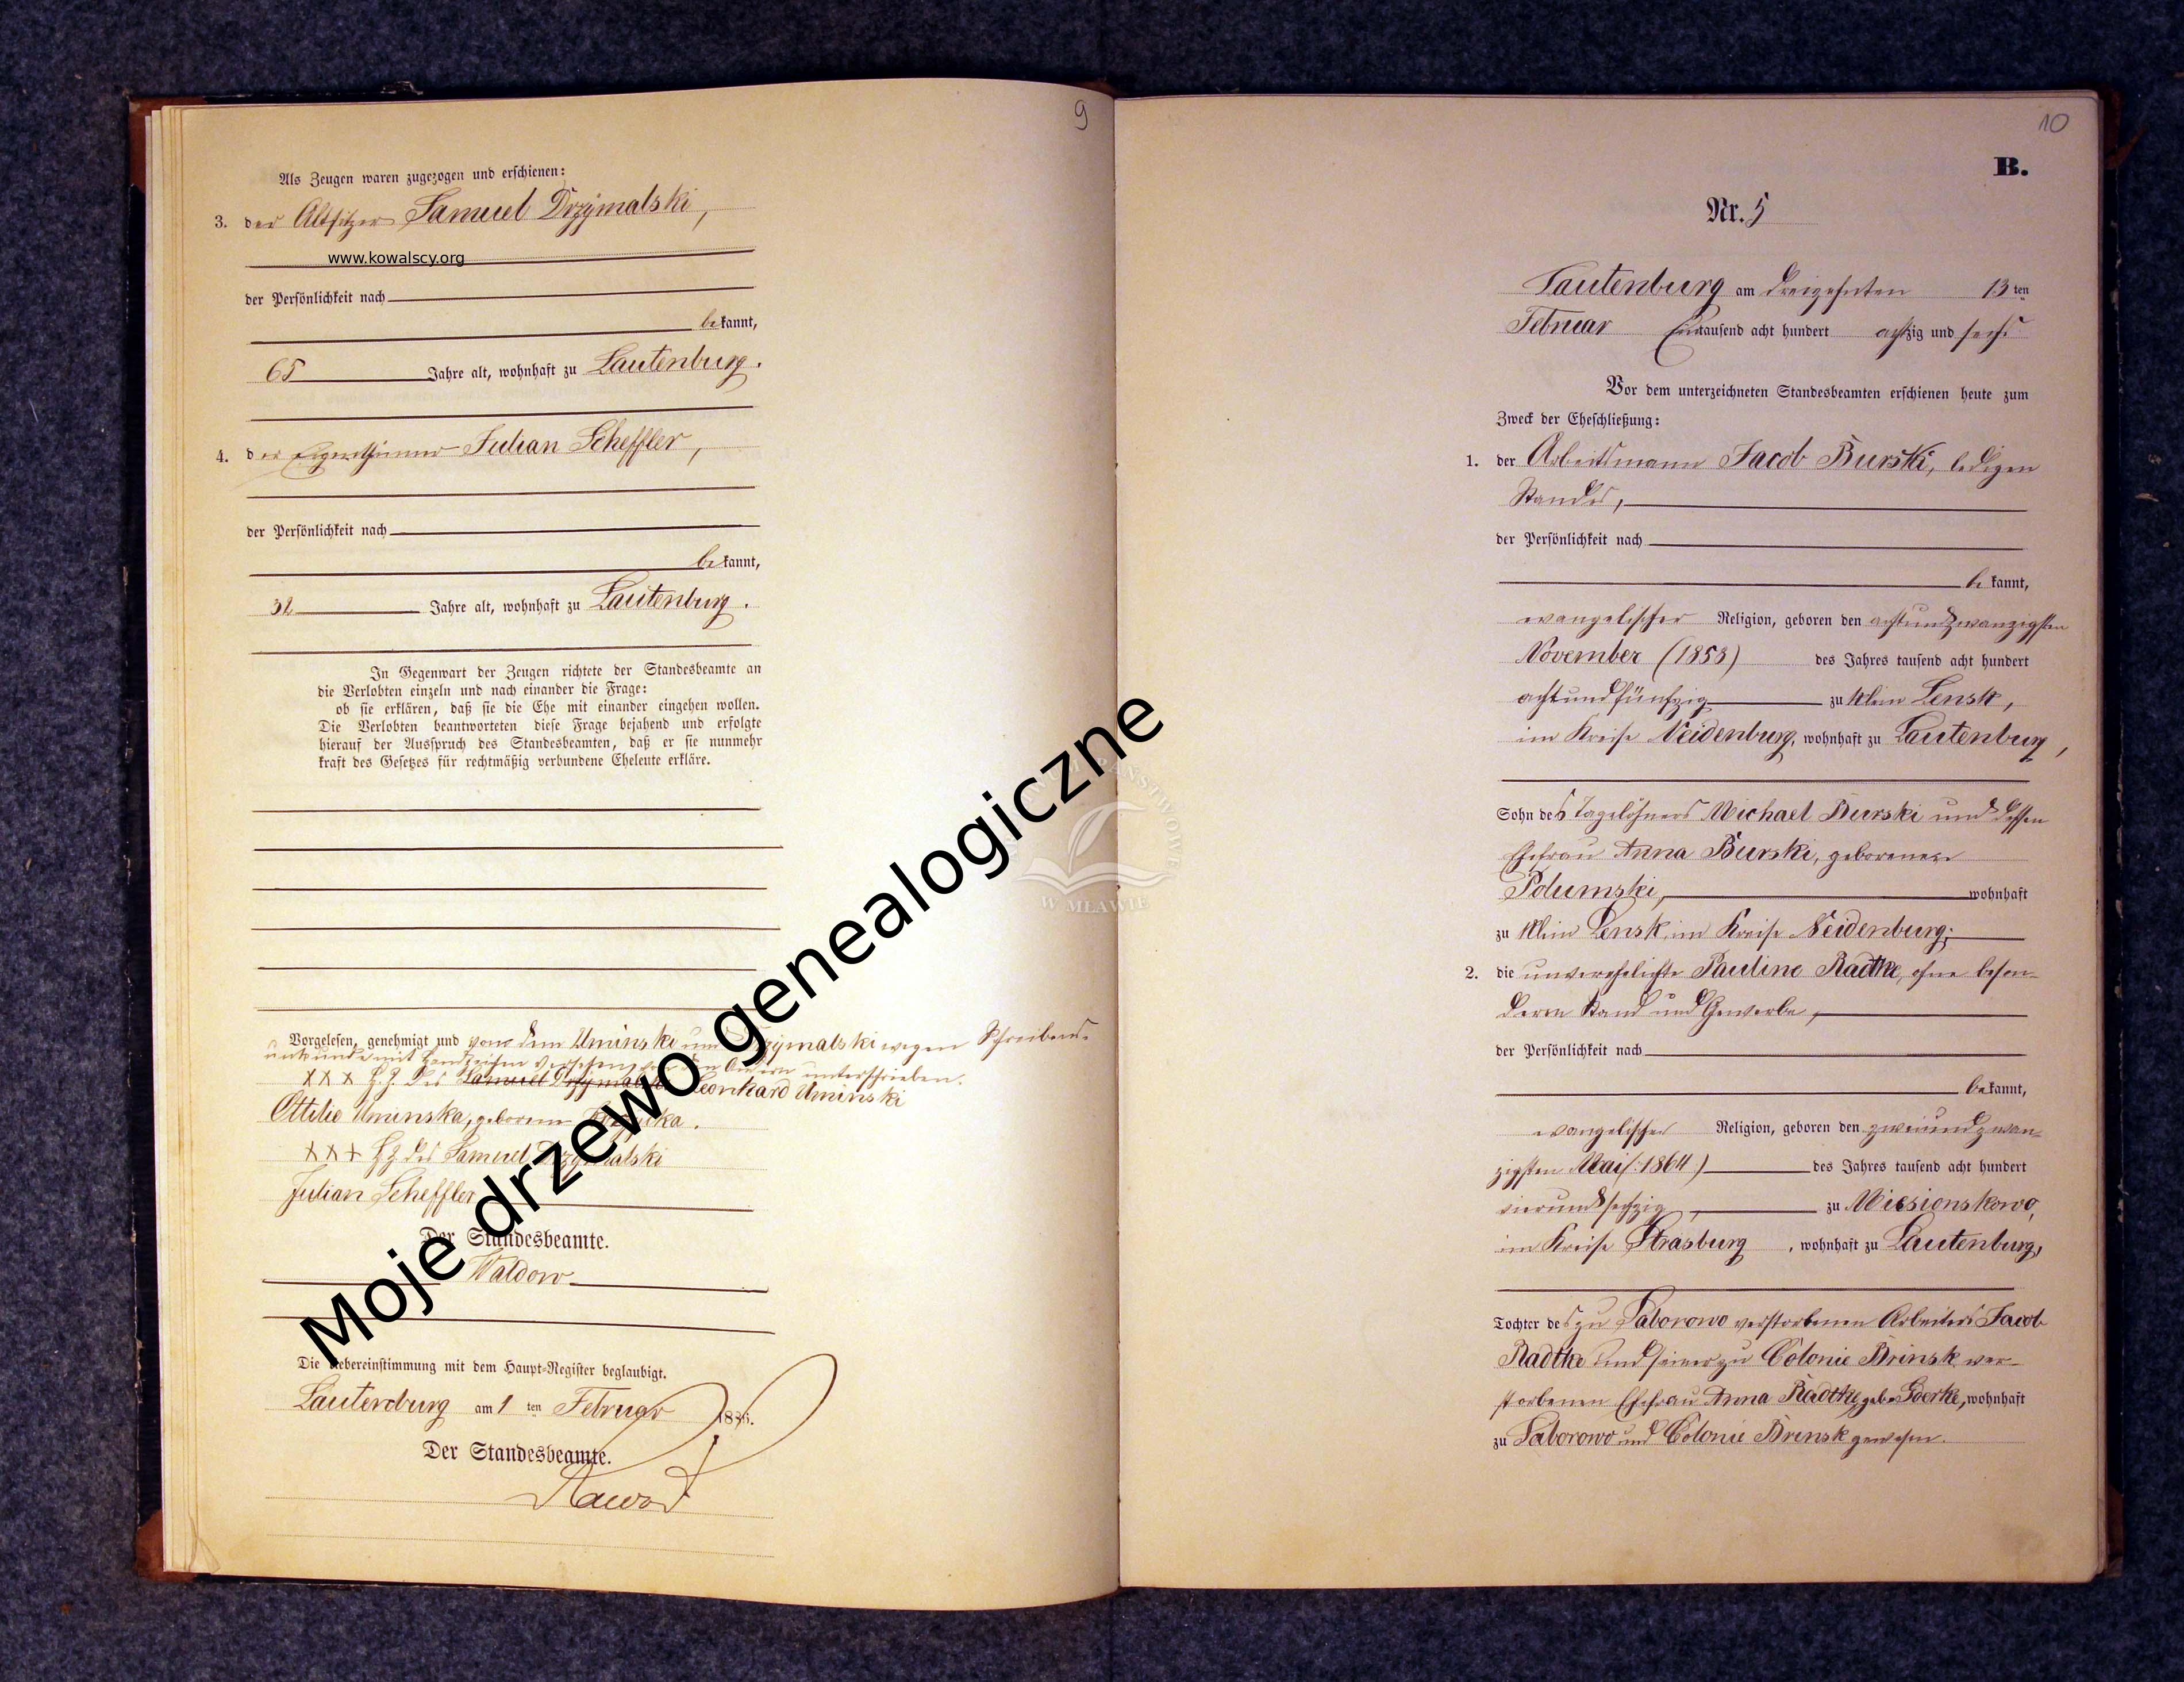 9
Als Zeugen waren zugezogen und erschienen:
3. der Altsitzer Samuel Drzymalski,
www.kowalscy.org
der Persönlichkeit nach
bekannt,
65 Jahre alt, wohnhaft zu Lautenburg.
4. der Eigenthümer Julian Scheffler,
der Persönlichkeit nach
bekannt,
32 Jahre alt, wohnhaft zu Lautenburg.
In Gegenwart der Zeugen richtete der Standesbeamte an
die Verlobten einzeln und nach einander die Frage:
ob sie erklären, daß sie die Ehe mit einander eingehen wollen.
Die Verlobten beantworteten diese Frage bejahend und erfolgte
hierauf der Ausspruch des Standesbeamten, daß er sie nunmehr
kraft des Gesetzes für rechtmäßig verbundene Eheleute erkläre.
Vorgelesen, genehmigt und von dem Uminski und Drzymalski wegen Schreibens-
unkunde mit Handzeichen versehen, von den Andern unterschrieben.
XXX H.Z. des Samuel Drzymalski Leonhard Uminski
Ottilie Uminska, geborene
XXX HZ des Samuel Drzymalski
Julian Scheffler
Der Standesbeamte.
Waldow
Die Uebereinstimmung mit dem Haupt-Register beglaubigt.
Lautenburg am 1 ten Februar 1886.
Der Standesbeamte.
Moje drzewo genealogiczne
W MŁAWIE
10
B.
Nr. 5
Lautenburg am dreizehnten 13 ten
Februar Eintausend acht hundert achtzig und sechs
Vor dem unterzeichneten Standesbeamten erschienen heute zum
Zweck der Eheschließung:
1. der Arbeitsmann Jacob Burski, ledigen
Standes,
der Persönlichkeit nach
bekannt,
evangelischer Religion, geboren den achtundzwanzigsten
November (1858) des Jahres tausend acht hundert
achtundfünfzig zu Klein Lensk,
im Kreise Neidenburg, wohnhaft zu Lautenburg,
Sohn des Tagelöhners Michael Burski und dessen
Ehefrau Anna Burski, geborenen
Polumski, wohnhaft
zu Klein Lensk im Kreise Neidenburg;
2. die unverehelichte Pauline Radtke, ohne beson-
dern Stand und Gewerbe,
der Persönlichkeit nach
bekannt,
evangelischer Religion, geboren den zweiundzwan-
zigsten Mai (:1864) des Jahres tausend acht hundert
vierundsechzig, zu Miesionskowo,
im Kreise Strasburg, wohnhaft zu Lautenburg,
Tochter des zu Zaborowo verstorbenen Arbeiters Jacob
Radtke und seiner zu Colonie Brinsk ver-
storbenen Ehefrau Anna Radtke geb. Goerke, wohnhaft
zu Zaborowo und Colonie Brinsk gewesen.